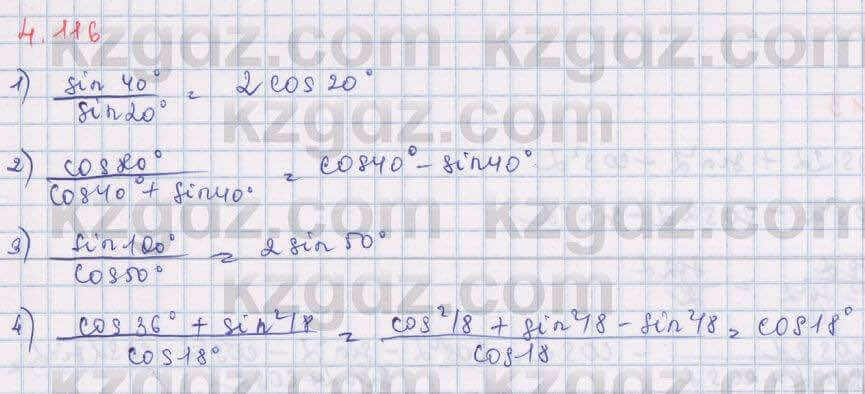 4.116
1) sin 40° / sin 20° = 2 cos 20°
2) cos 80° / cos 40° + sin 40° = cos 40° - sin 40°
3) sin 100° / cos 50° = 2 sin 50°
4) cos 36° + sin² 18 / cos 18° = cos² 18 + sin² 18 - sin² 18 / cos 18 = cos 18°
kzgdz.com kzgdz.com
kzgdz.com
kzgdz.com kzgdz.com
kzgdz.com
kzgdz.com kzgdz.com